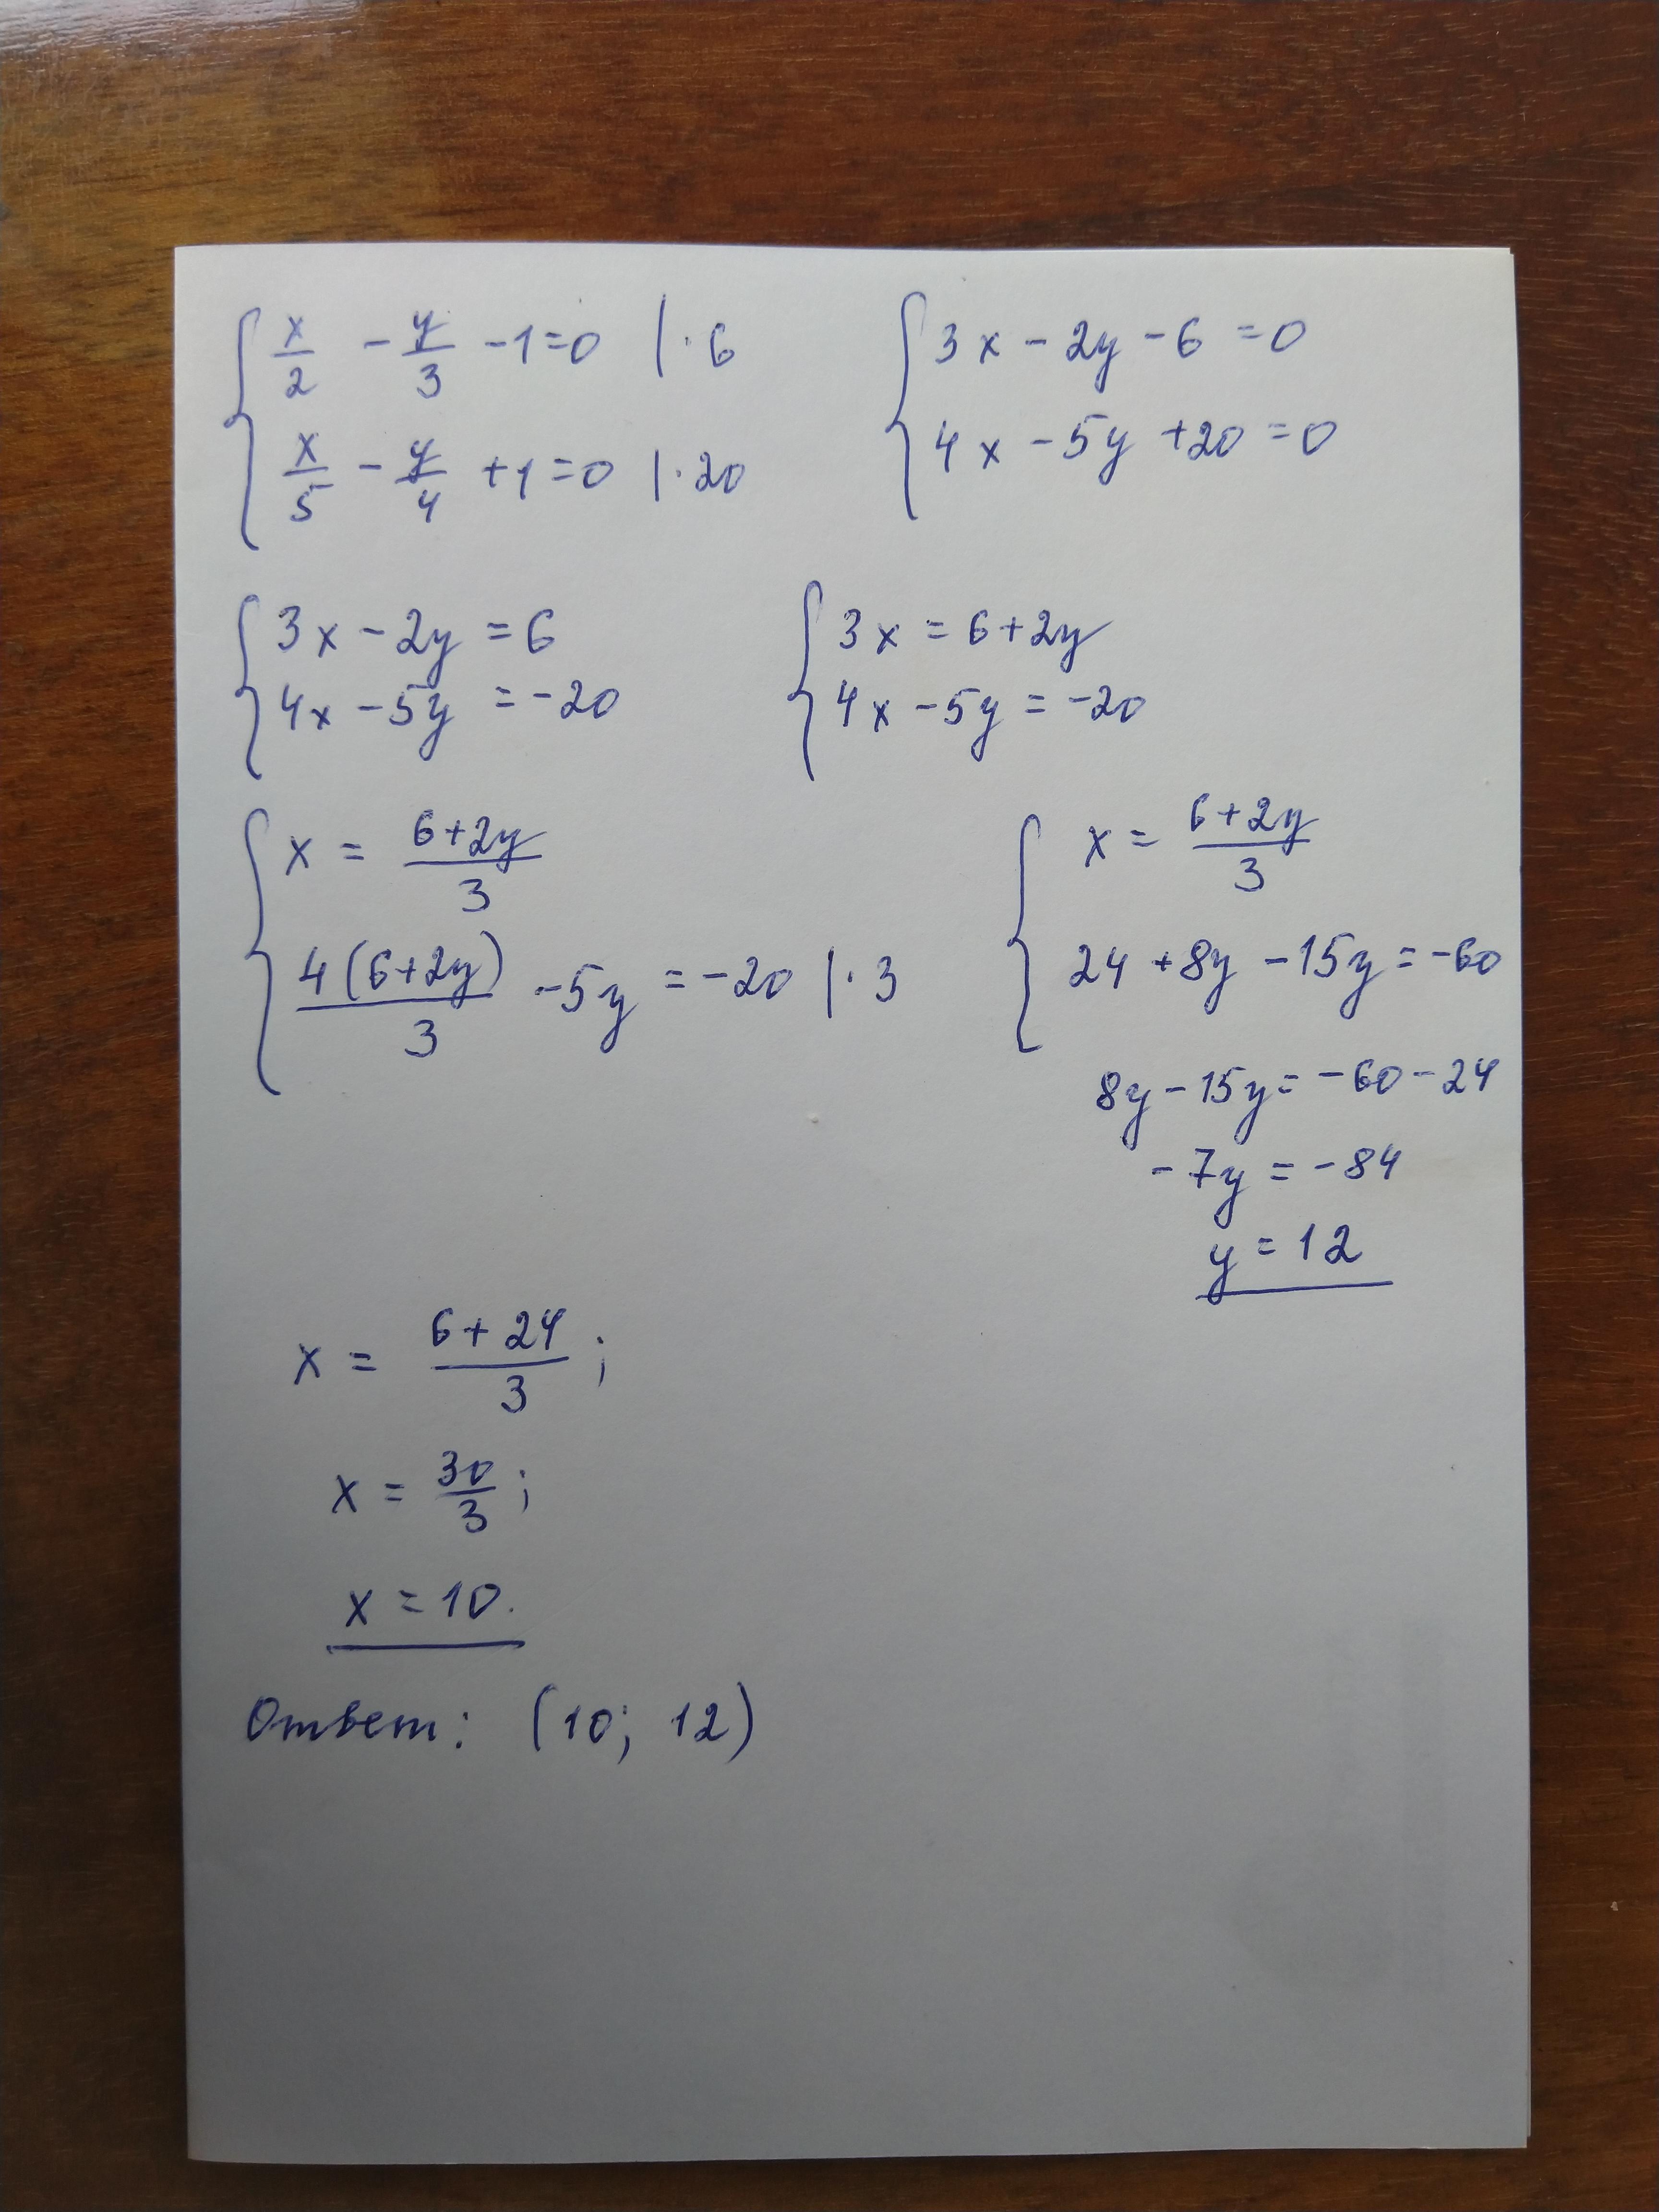 { x/2 - y/3 - 1 = 0 | · 6
x/5 - y/4 + 1 = 0 | · 20
{ 3x - 2y - 6 = 0
4x - 5y + 20 = 0
{ 3x - 2y = 6
4x - 5y = -20
{ 3x = 6 + 2y
4x - 5y = -20
{ x = (6+2y)/3
4(6+2y)/3 - 5y = -20 | · 3
{ x = (6+2y)/3
24 + 8y - 15y = -60
8y - 15y = -60 - 24
-7y = -84
y = 12
x = (6 + 24)/3 ;
x = 30/3 ;
x = 10.
Ответ: (10; 12)